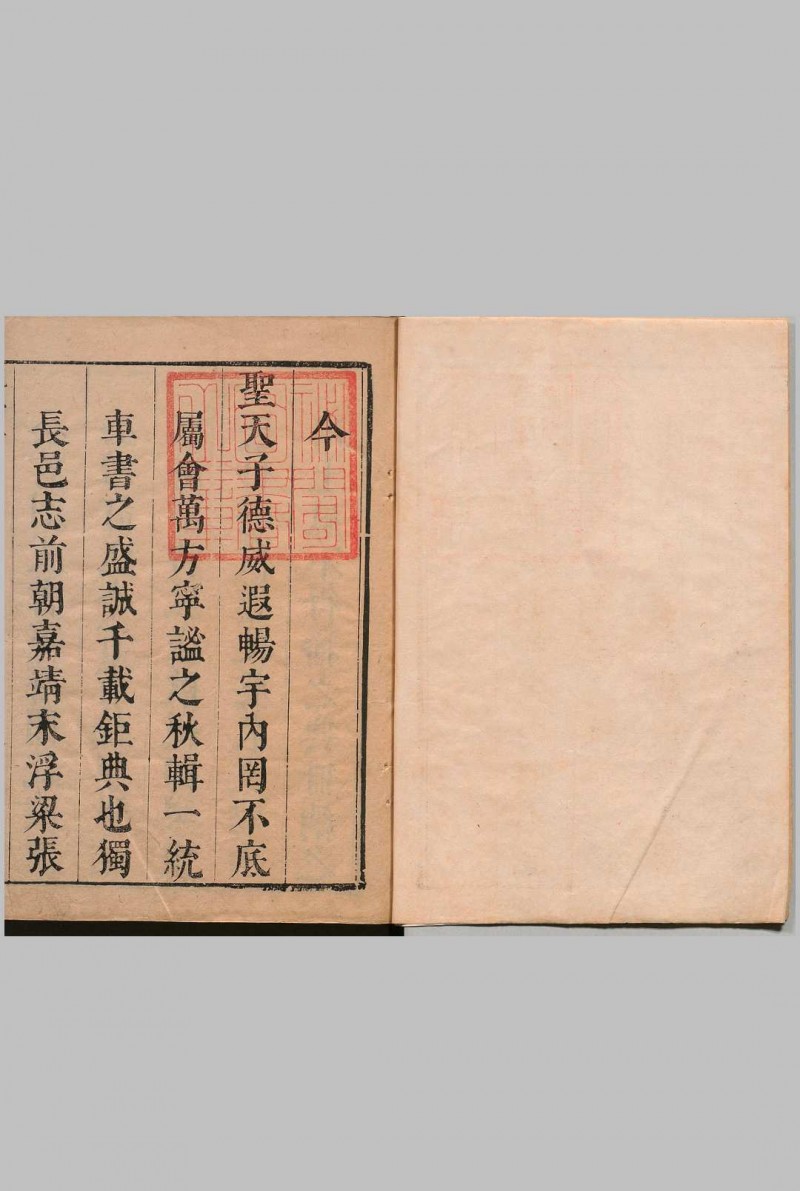 今
聖天子德威遐暢宇內罔不底
屬會萬方寧謐之秋輯一統
車書之盛誠千載鉅典也獨
長邑志前朝嘉靖末浮梁張